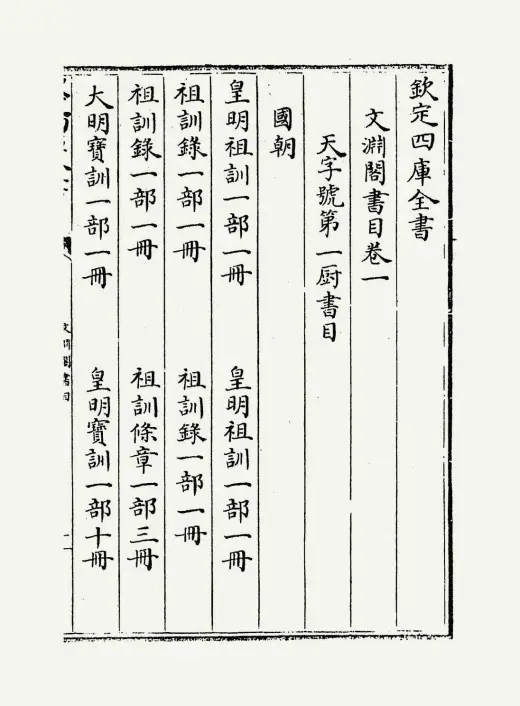 欽定四庫全書
文淵閣書目卷一
天字號第一厨書目
國朝
皇明祖訓一部一冊
皇明祖訓一部一冊
祖訓錄一部一冊
祖訓錄一部一冊
祖訓錄一部一冊
祖訓條章一部三冊
大明寶訓一部一冊
皇明寶訓一部十冊
文淵閣書目